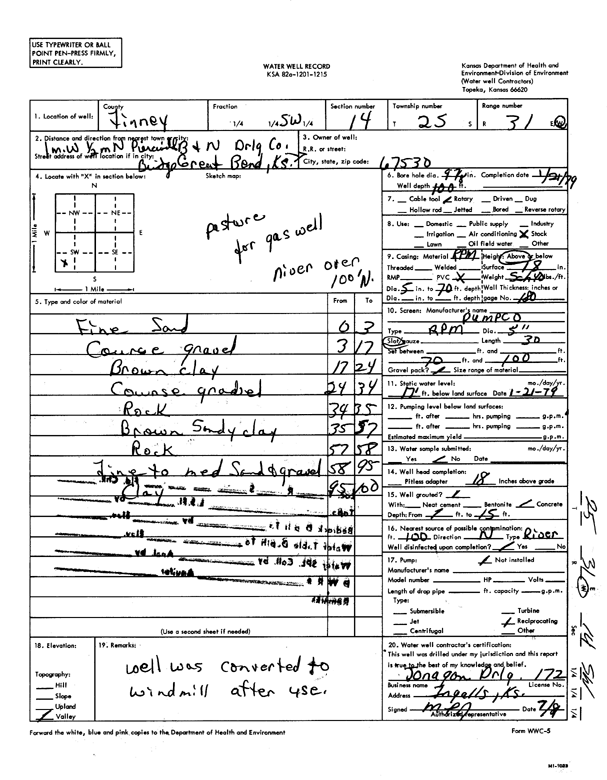 USE TYPEWRITER OR BALL
POINT PEN-PRESS FIRMLY,
PRINT CLEARLY.
WATER WELL RECORD
KSA 82a-1201-1215
Kansas Department of Health and
Environment-Division of Environment
(Water well Contractors)
Topeka, Kansas 66620
1. Location of well: County Finney Fraction 1/4 SW 1/4 Section number 14 Township number T 25 S Range number R 31 E/W
2. Distance and direction from nearest town or city: 1 m.W ½ mN
Street address of well location if in city:
3. Owner of well: B & N Drlg Co.
R.R. or street:
City, state, zip code: Great Bend, Ks. 67530
4. Locate with "X" in section below: Sketch map:
N
NW NE
W E
SW SE
X
S
1 Mile
1 Mile
pasture
for gas well
river over
100' N.
5. Type and color of material From To
Fine Sand 0 3
Course gravel 3 17
Brown clay 17 24
Course gradvel 24 34
Rock 34 35
Brown Sandy clay 35 57
Rock 57 58
Fine to med Sand & gravel 58 95
Clay 95 100
(Use a second sheet if needed)
6. Bore hole dia. 9⅞ in. Completion date 1/21/79
Well depth 100 ft.
7. Cable tool ✓ Rotary Driven Dug
Hollow rod Jetted Bored Reverse rotary
8. Use: Domestic Public supply Industry
Irrigation Air conditioning X Stock
Lawn Oil field water Other
9. Casing: Material RPM Height: Above or below
Threaded Welded Surface 18 in.
RMP PVC X Weight Sch 40 lbs./ft.
Dia. 5 in. to 70 ft. depth Wall Thickness: inches or
Dia. in. to ft. depth gage No. 160
10. Screen: Manufacturer's name
Type RPM Dia. 5"
Slot/gauze Length 30
Set between ft. and ft.
70 ft. and 100 ft.
Gravel pack? ✓ Size range of material
11. Static water level: mo./day/yr.
17' ft. below land surface Date 1-21-79
12. Pumping level below land surfaces:
ft. after hrs. pumping g.p.m.
ft. after hrs. pumping g.p.m.
Estimated maximum yield g.p.m.
13. Water sample submitted: mo./day/yr.
Yes ✓ No Date
14. Well head completion:
Pitless adapter 18 Inches above grade
15. Well grouted? ✓
With: Neat cement Bentonite ✓ Concrete
Depth: From ft. to 15 ft.
16. Nearest source of possible contamination:
ft. 100 Direction N Type River
Well disinfected upon completion? ✓ Yes No
17. Pump: ✓ Not installed
Manufacturer's name
Model number HP Volts
Length of drop pipe ft. capacity g.p.m.
Type:
Submersible Turbine
Jet ✓ Reciprocating
Centrifugal Other
18. Elevation:
Topography:
Hill
Slope
Upland
✓ Valley
19. Remarks:
well was converted to
windmill after use.
20. Water well contractor's certification:
This well was drilled under my jurisdiction and this report
is true to the best of my knowledge and belief.
Drlg. 172
Business name License No.
Address Ingalls, Ks.
Signed Date
Authorized representative
Forward the white, blue and pink copies to the Department of Health and Environment
Form WWC-5